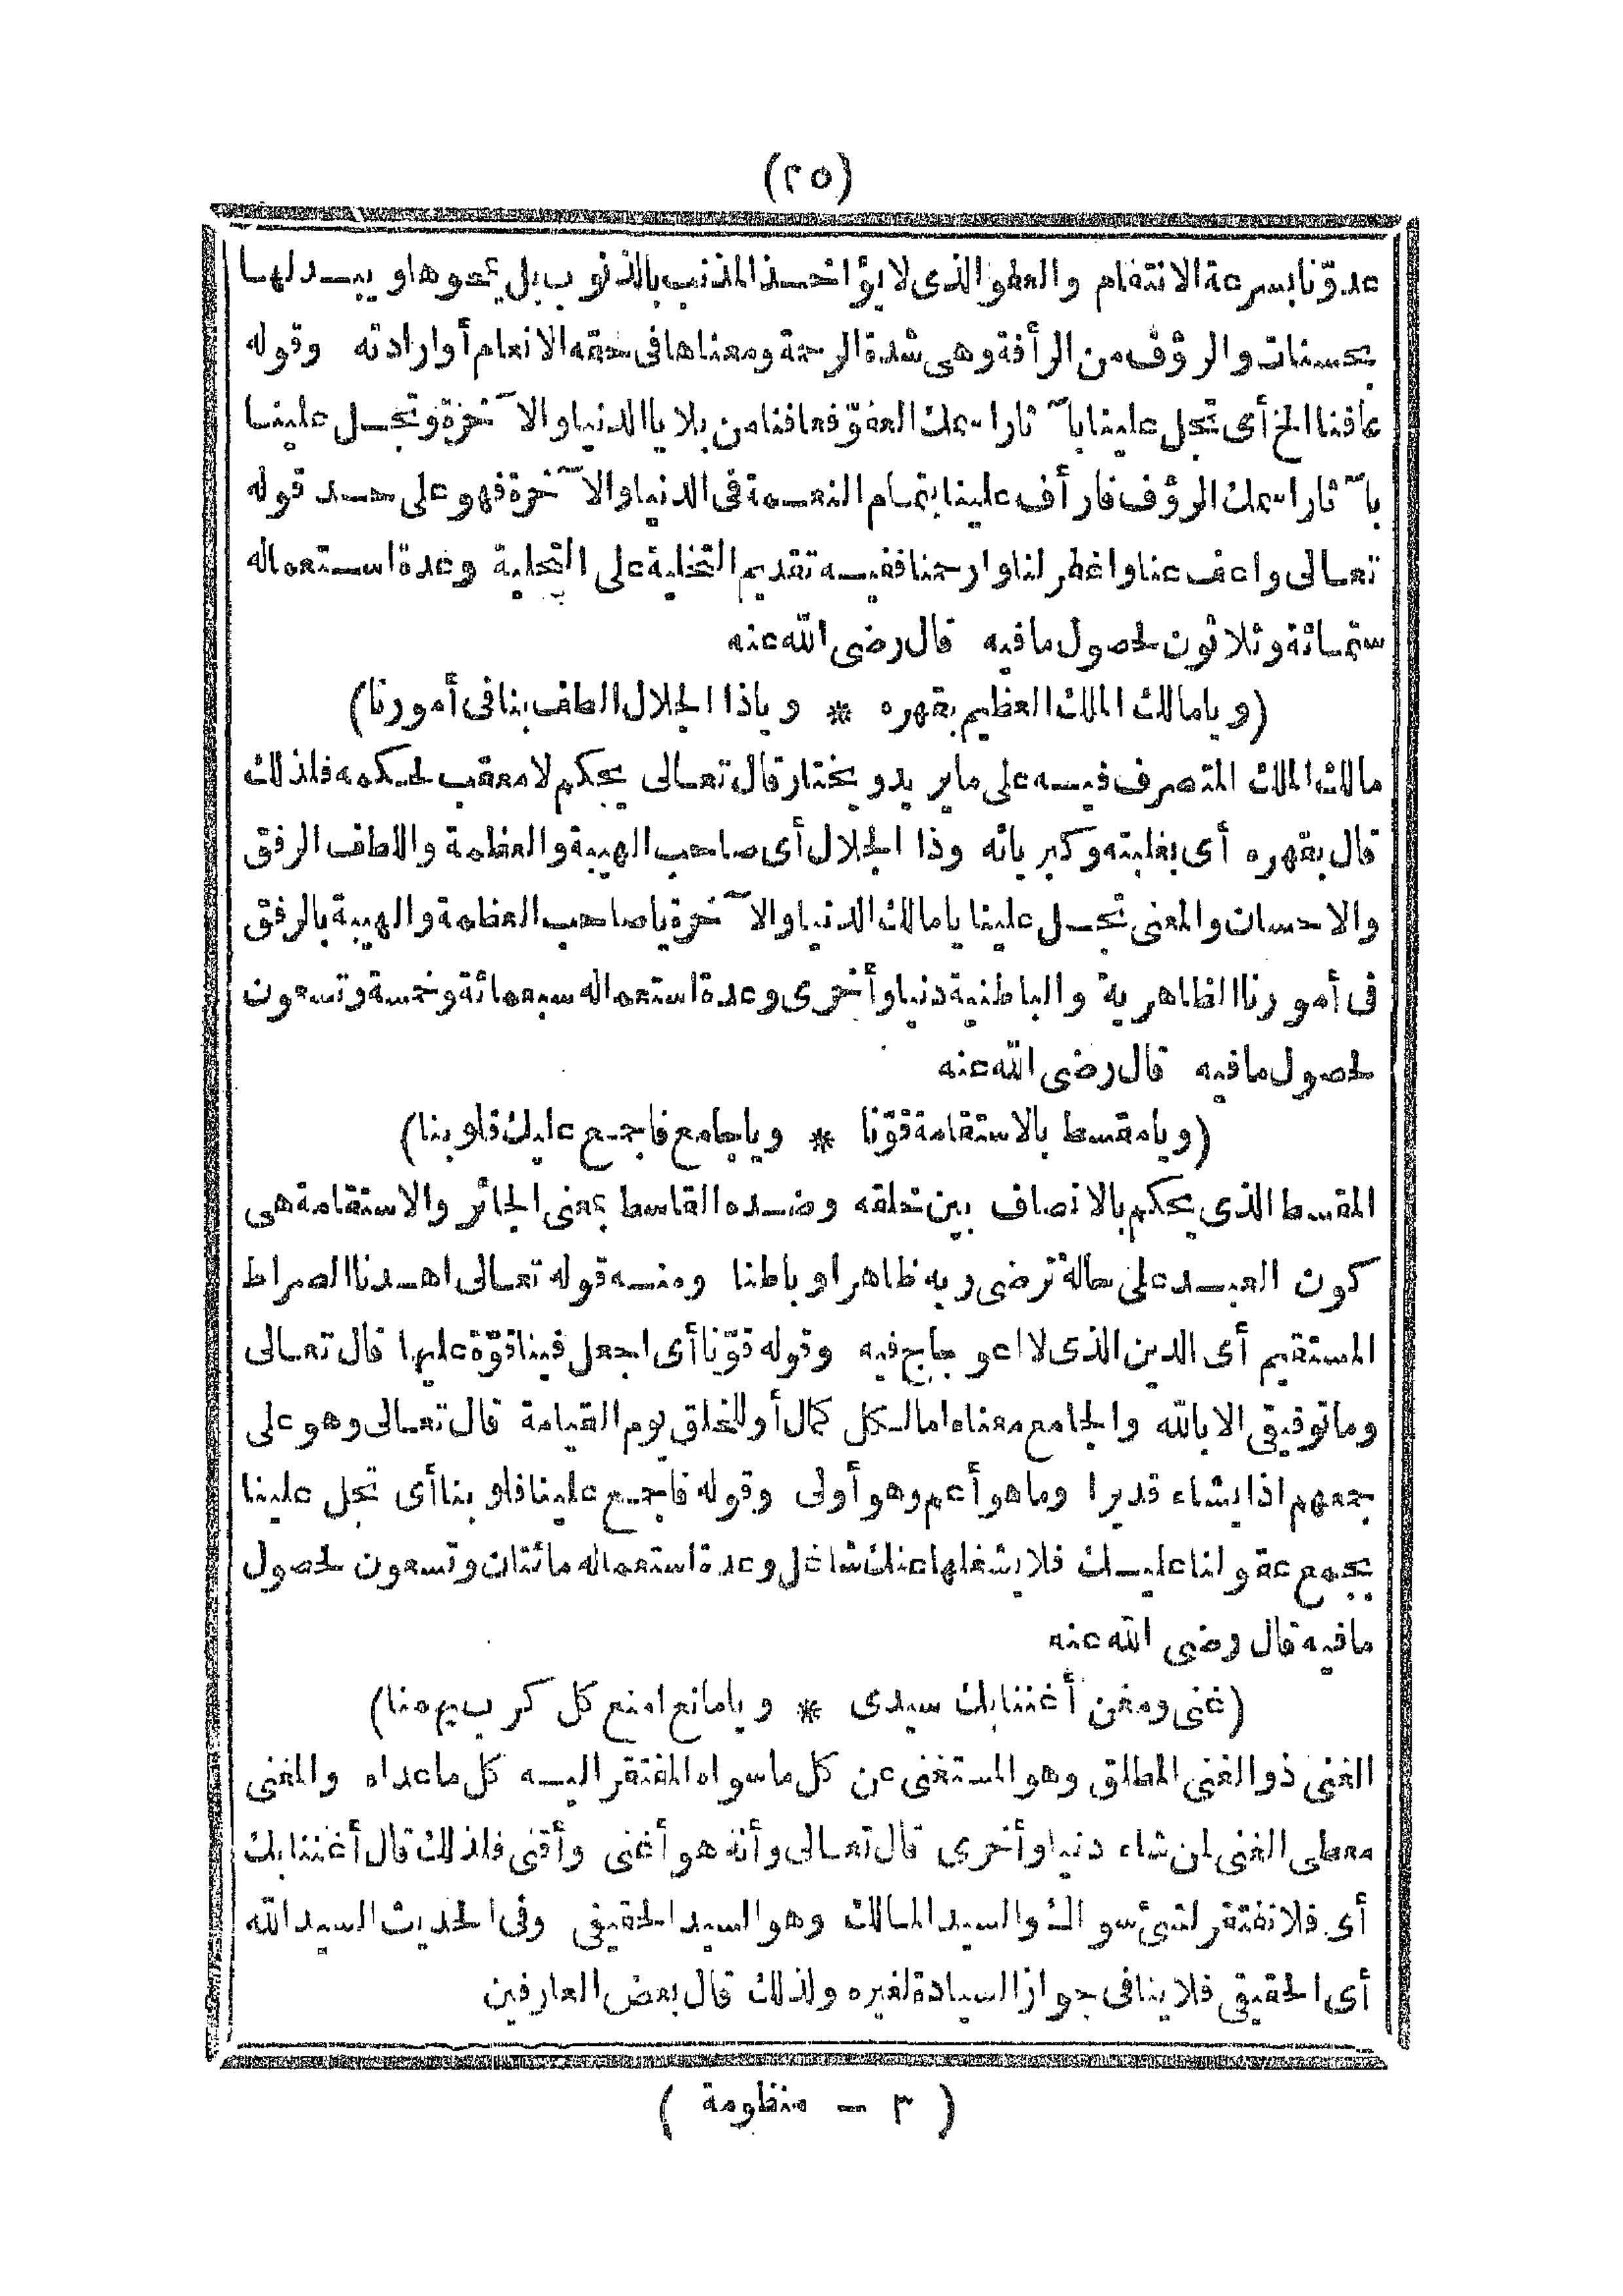 (٢٥)
عدوّنا بسرعة الانتقام والعفو الذى لا يؤاخذ المذنب بالذنوب بل يمحوها ويبدلها
بحسنات والرؤف من الرأفة وهى شدة الرحمة ومعناها فى حقه الانعام أو ارادته وقوله
عافنا الخ أى تجل علينا بآ ثار اسمك العفوّ فعافنا من بلايا الدنيا والآ خرة وتجل علينا
بآ ثار اسمك الرؤف فارأف علينا بتمام النعمة فى الدنيا والآ خرة فهو على حد قوله
تعالى واعف عنا واغفر لنا وارحمنا ففيه تقديم التخلية على التحلية وعدة استعماله
ستمائة وثلاثون لحصول ما فيه قال رضى الله عنه
(ويا مالك الملك العظيم بقهره * ويا ذا الجلال الطف بنا فى أمورنا)
مالك الملك المتصرف فيه على ما يريد ويختار قال تعالى يحكم لا معقب لحكمه فلذلك
قال بقهره أى بغلبته وكبريائه وذا الجلال أى صاحب الهيبة والعظمة واللطف الرفق
والاحسان والمعنى تجل علينا يا مالك الدنيا والآ خرة يا صاحب العظمة والهيبة بالرفق
فى أمورنا الظاهرية والباطنية دنيا وأخرى وعدة استعماله سبعمائة وخمسة وتسعون
لحصول ما فيه قال رضى الله عنه
(ويا مقسط بالاستقامة قوّنا * ويا جامع فاجمع عليك قلوبنا)
المقسط الذى يحكم بالانصاف بين خلقه وضده القاسط بمعنى الجائر والاستقامة هى
كون العبد على حالة ترضى ربه ظاهرا وباطنا ومنه قوله تعالى اهدنا الصراط
المستقيم أى الدين الذى لا اعوجاج فيه وقوله قوّنا أى اجعل فينا قوّة عليها قال تعالى
وما توفيقى الا بالله والجامع معناه اما لكل كمال أو للخلق يوم القيامة قال تعالى وهو على
جمعهم اذا يشاء قديرا وما هو أعم وهو أولى وقوله فاجمع علينا قلوبنا أى تجل علينا
بجمع عقولنا عليك فلا يشغلها عنك شاغل وعدة استعماله مائتان وتسعون لحصول
ما فيه قال رضى الله عنه
(غنى ومغن أغننا بك سيدى * ويا مانع امنع كل كرب يهمنا)
الغنى ذو الغنى المطلق وهو المستغنى عن كل ما سواه المفتقر اليه كل ما عداه والمغنى
معطى الغنى لمن شاء دنيا وأخرى قال تعالى وأنه هو أغنى وأقنى فلذلك قال أغننا بك
أى فلا نفتقر لشئ سواك والسيد المالك وهو السيد الحقيقى وفى الحديث السيد الله
أى الحقيقى فلا ينافى جواز السيادة لغيره ولذلك قال بعض العارفين
( ٣ — منظومة )